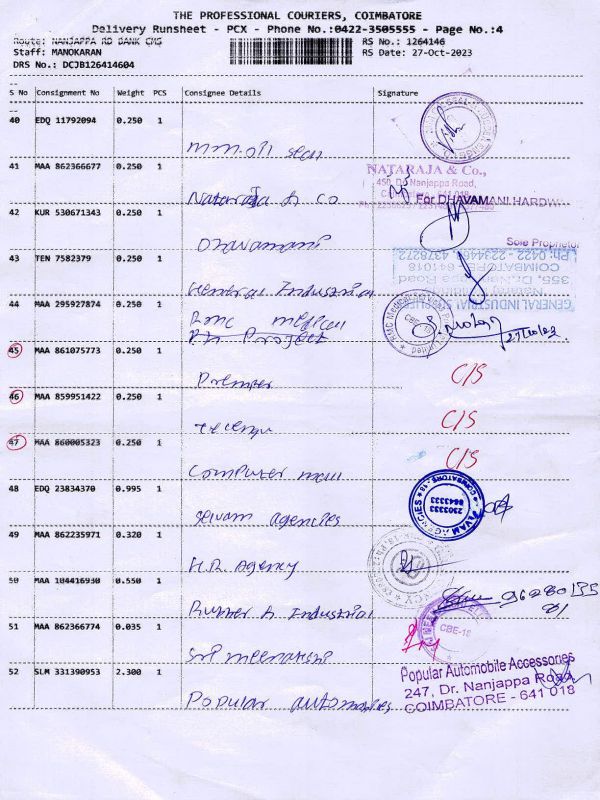 THE PROFESSIONAL COURIERS, COIMBATORE
Delivery Runsheet - PCX - Phone No.:0422-3505555 - Page No.:4
Route: NANJAPPA RD BANK CMS RS No.: 1264146
Staff: MANOKARAN RS Date: 27-Oct-2023
DRS No.: DCJB126414604
S No Consignment No Weight PCS Consignee Details Signature
40 EDQ 11792094 0.250 1
M.M.Oil
41 MAA 862366677 0.250 1
NATARAJA & Co.,
450, Dr. Nanjappa Road,
Nataraja & Co
For DHAVAMANI HARDW
42 KUR 530671343 0.250 1
Dhavamani
Sole Proprietor
43 TEN 7582379 0.250 1
General Industrial
GENERAL INDUSTRIAL
355,
COIMBATORE - 641018
44 MAA 295927874 0.250 1
RMC medical
Project
27/10/23
45 MAA 861075773 0.250 1
Premier C/S
46 MAA 859951422 0.250 1
C/S
47 MAA 860005323 0.250 1
C/S
Computer mall
48 EDQ 23834370 0.995 1
Selvam agencies
COIMBATORE - 18
2303333
49 MAA 862235971 0.320 1
H.R. Agency
50 MAA 184416930 0.550 1
Rubber & Industrial
51 MAA 862366774 0.035 1
CBE-18
Sri Meenakshi
52 SLM 331390953 2.300 1
Popular automobiles
Popular Automobile Accessories
247, Dr. Nanjappa Road,
COIMBATORE - 641 018